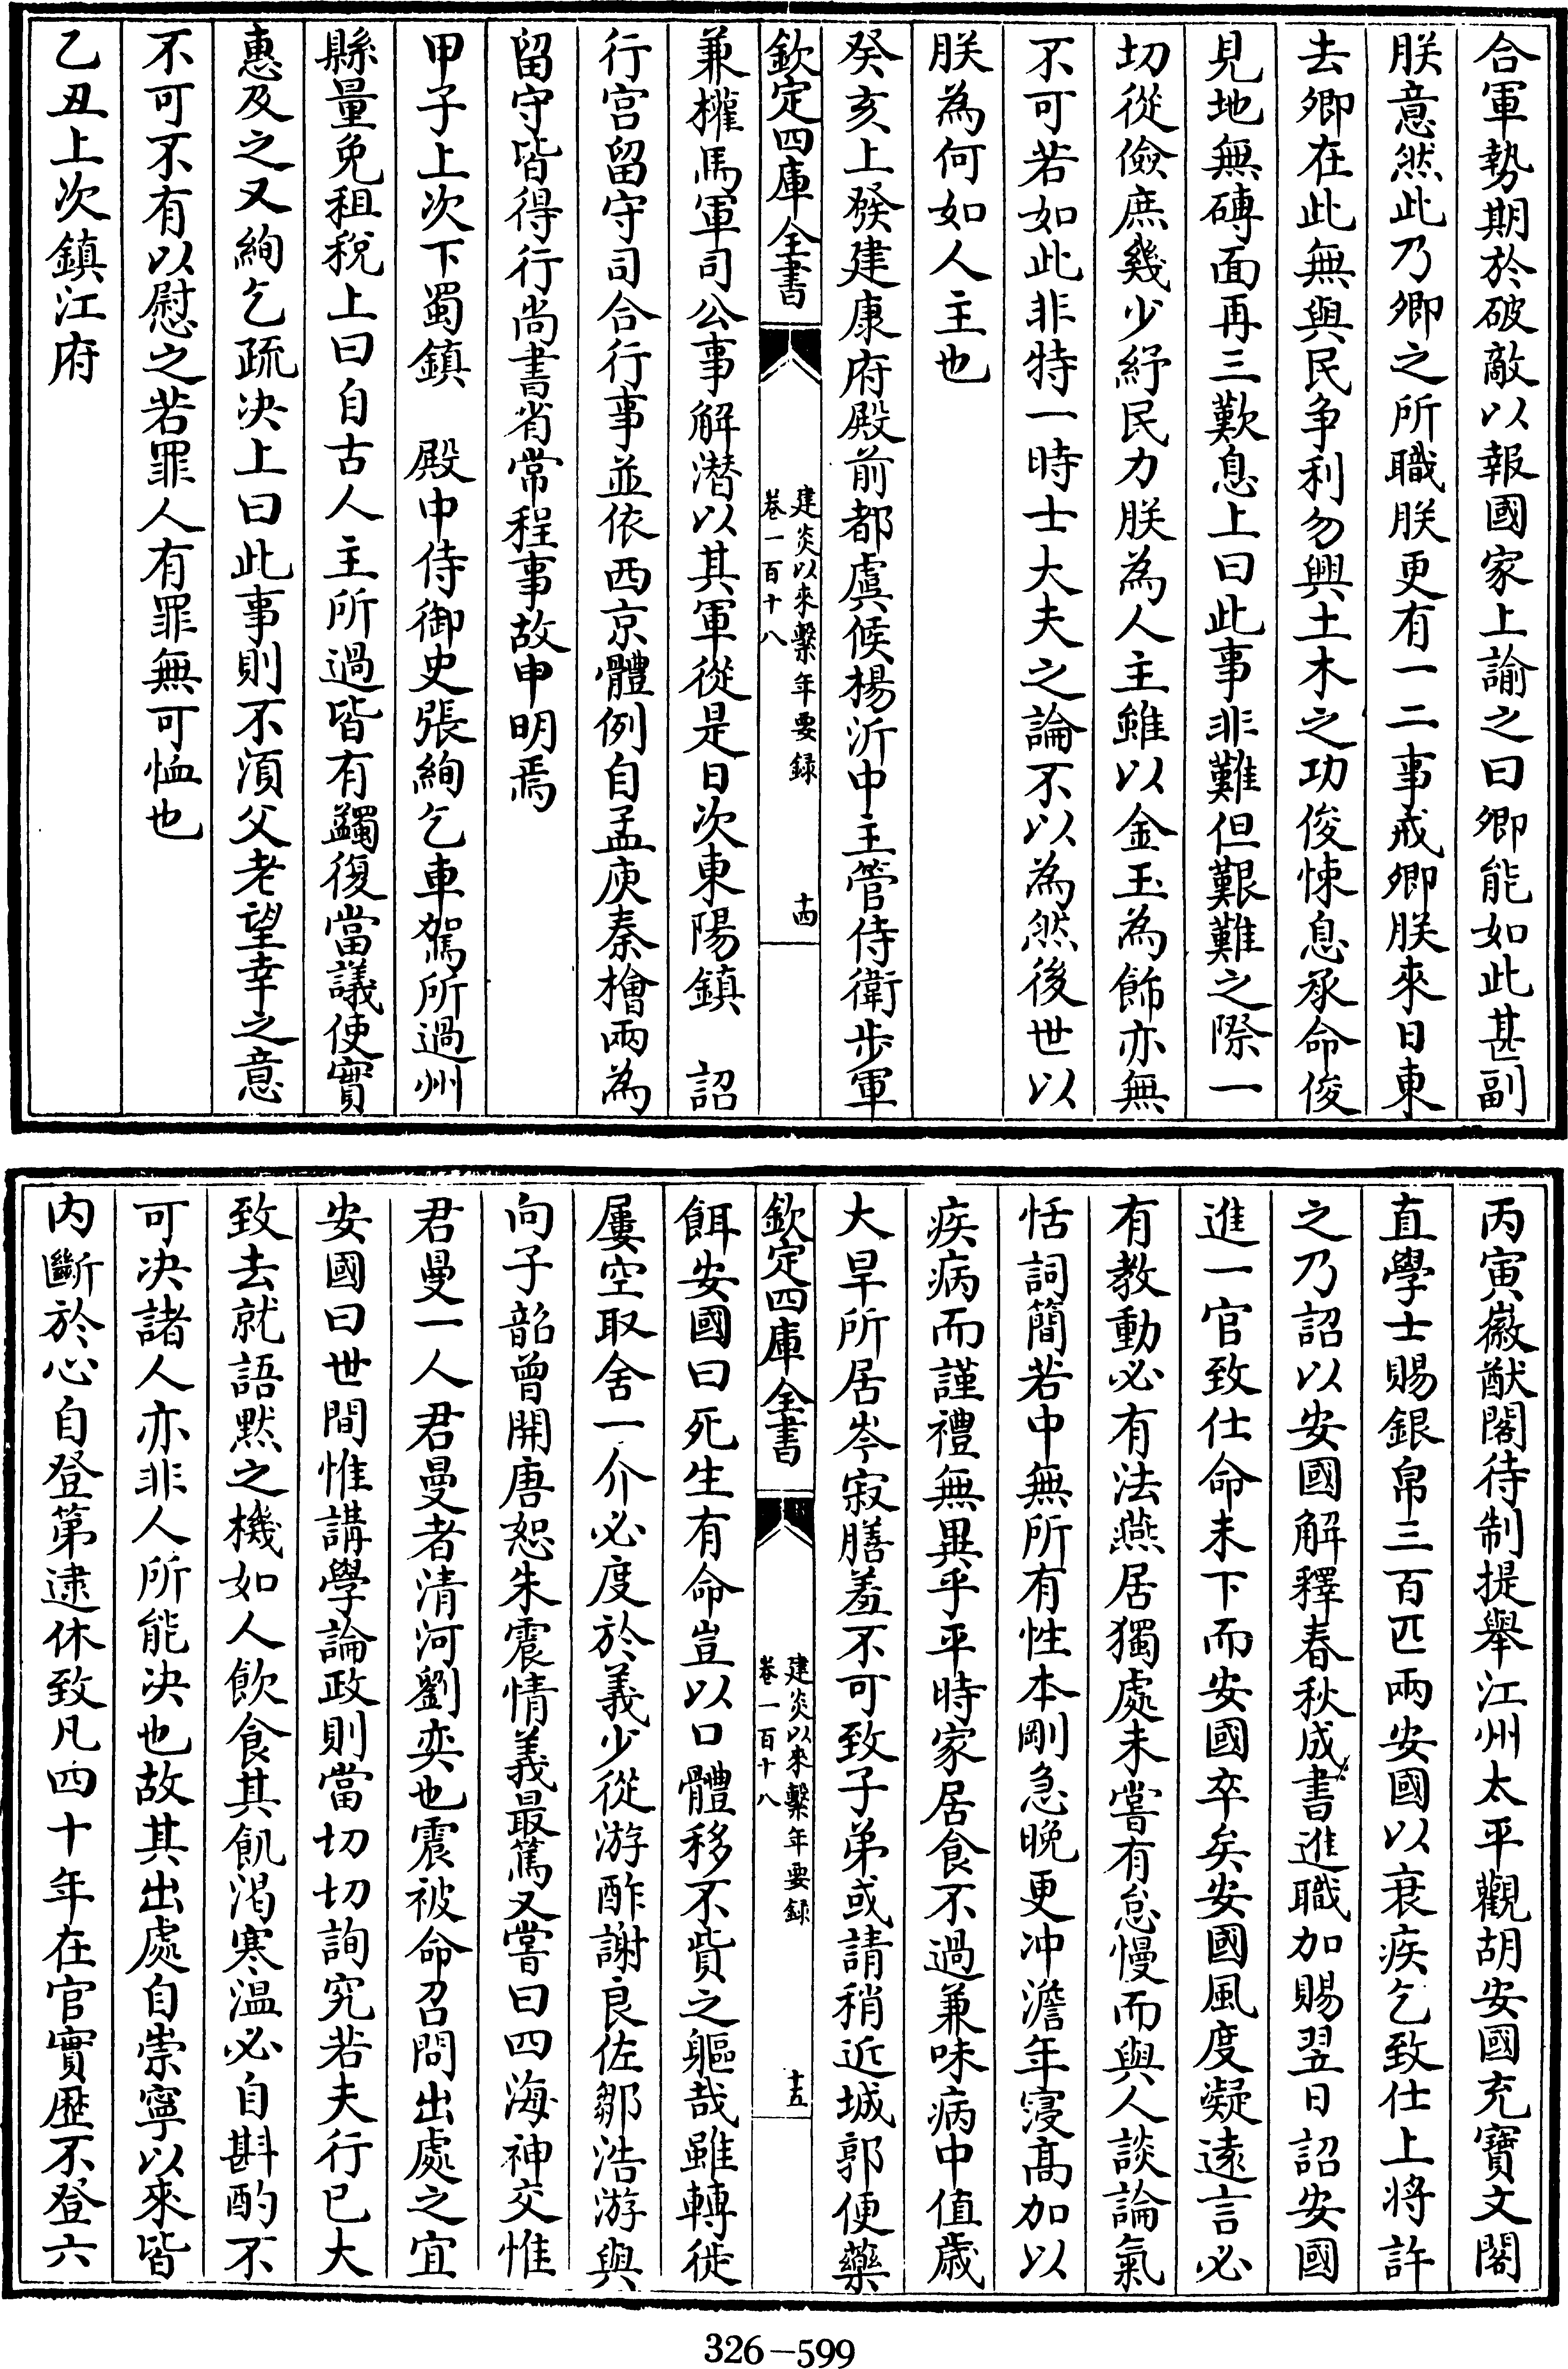 合軍勢期於破敵以報國家上諭之曰卿能如此甚副
朕意然此乃卿之所職朕更有一二事戒卿朕來日東
去卿在此無與民争利勿興土木之功俊悚息承命俊
見地無磚面再三歎息上曰此事非難但艱難之際一
切從儉庶幾少紓民力朕為人主雖以金玉為飾亦無
不可若如此非特一時士大夫之論不以為然後世以
朕為何如人主也
癸亥上發建康府殿前都虞候楊沂中主管侍衛步軍
欽定四庫全書
建炎以來繫年要録
卷一百十八
十四
兼權馬軍司公事解潜以其軍從是日次東陽鎮　詔
行宫留守司合行事並依西京體例自孟庾秦檜兩為
留守皆得行尚書省常程事故申明焉
甲子上次下蜀鎮　殿中侍御史張絢乞車駕所過州
縣量免租税上曰自古人主所過皆有蠲復當議使實
惠及之又絢乞疏决上曰此事則不須父老望幸之意
不可不有以慰之若罪人有罪無可恤也
乙丑上次鎮江府
丙寅徽猷閣待制提舉江州太平觀胡安國充寶文閣
直學士賜銀帛三百匹兩安國以衰疾乞致仕上将許
之乃詔以安國解釋春秋成書進職加賜翌日詔安國
進一官致仕命未下而安國卒矣安國風度凝逺言必
有教動必有法燕居獨處未嘗有怠慢而與人談論氣
恬詞簡若中無所有性本剛急晚更冲澹年寖髙加以
疾病而謹禮無異乎平時家居食不過兼味病中值歳
大旱所居岑寂膳羞不可致子弟或請稍近城郭便藥
欽定四庫全書
建炎以來繫年要録
卷一百十八
十五
餌安國曰死生有命豈以口體移不貲之軀哉雖轉徙
屢空取舍一介必度於義少從游酢謝良佐鄒浩游與
向子韶曾開唐恕朱震情義最篤又嘗曰四海神交惟
君曼一人君曼者清河劉奕也震被命召問出處之宜
安國曰世間惟講學論政則當切切詢究若夫行已大
致去就語黙之機如人飲食其飢渴寒温必自斟酌不
可决諸人亦非人所能决也故其出處自崇寧以來皆
内斷於心自登第逮休致凡四十年在官實歴不登六
326-599